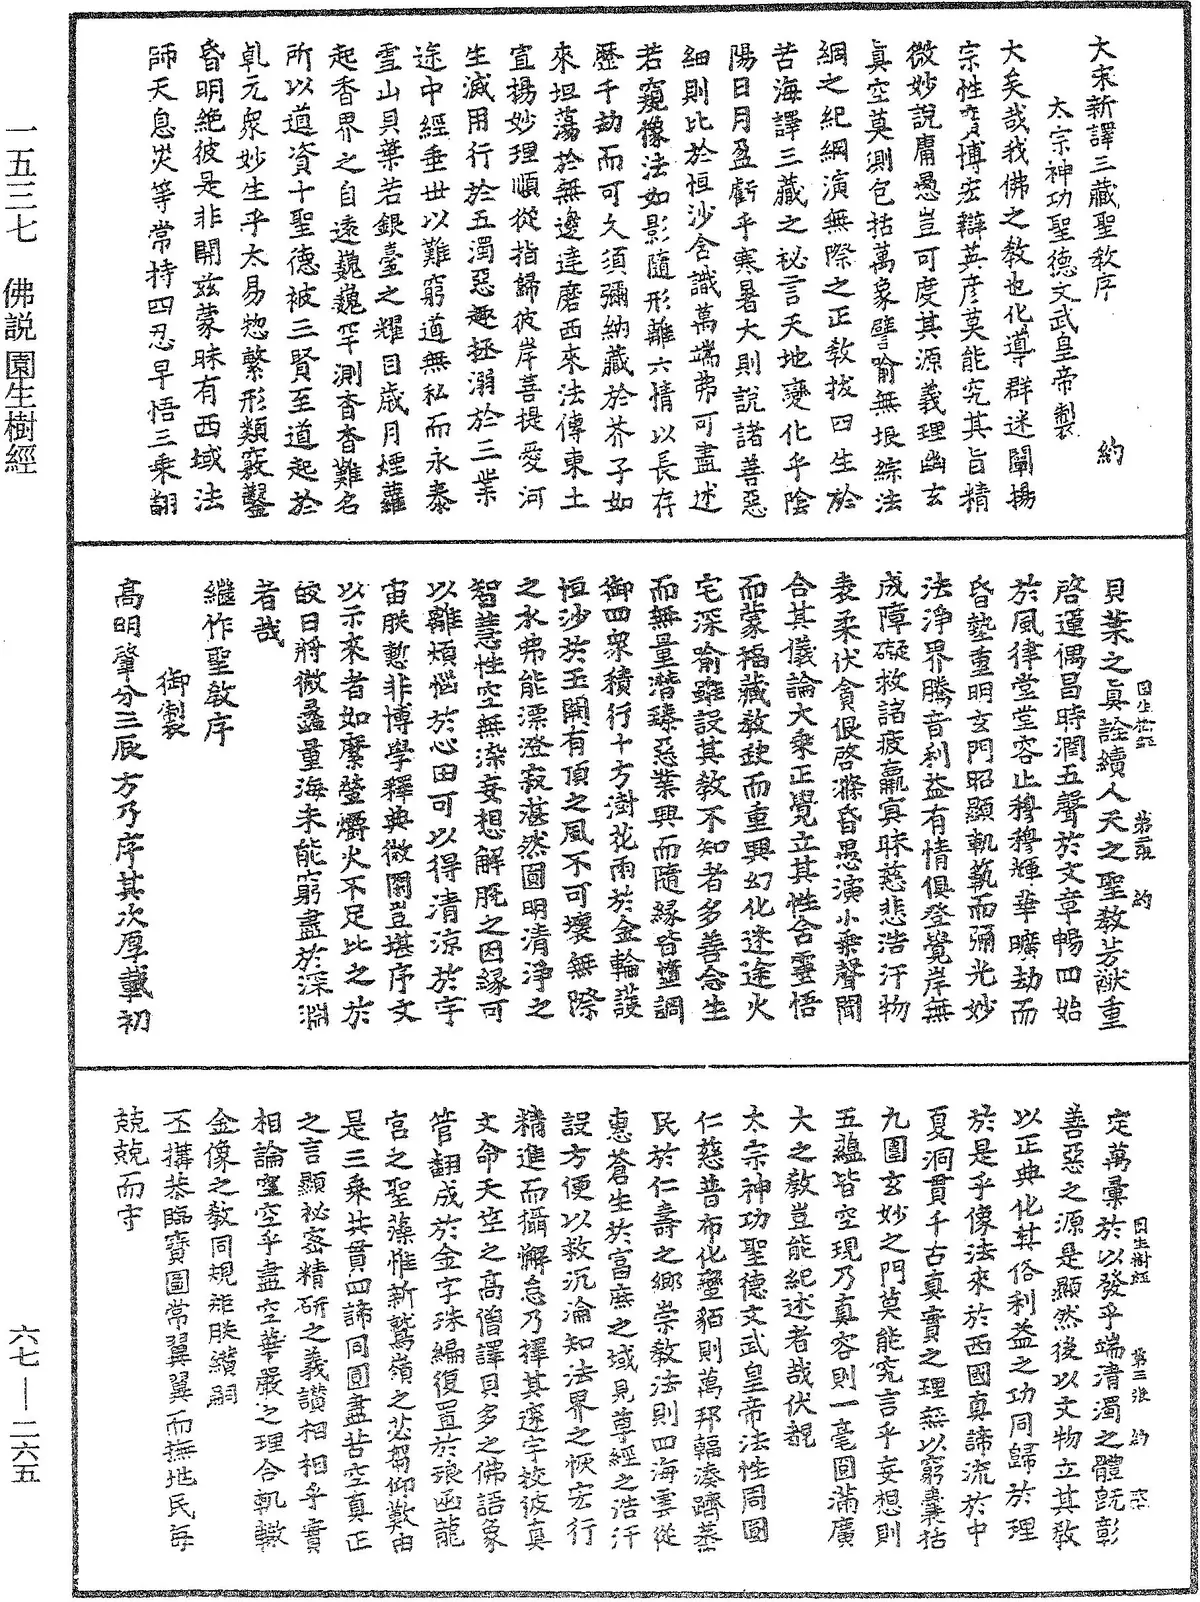 大宋新譯三藏聖教序　約
太宗神功聖德文武皇帝製
大矣哉我佛之教也化導群迷闡揚
宗性廣博宏辯英彦莫能究其旨精
微妙說庸愚豈可度其源義理幽玄
真空莫測包括萬象譬喻無垠綜法
綱之紀綱演無際之正教拔四生於
苦海譯三藏之祕言天地變化乎陰
陽日月盈虧乎寒暑大則說諸善惡
細則比於恒沙含識萬端弗可盡述
若窺像法如影隨形離六情以長存
歷千劫而可久須彌納藏於芥子如
來坦蕩於無邊達磨西來法傳東土
宣揚妙理順從指歸彼岸菩提愛河
生滅用行於五濁惡趣拯溺於三業
途中經垂世以難窮道無私而永泰
雪山貝葉若銀臺之耀目歲月煙蘿
起香界之自遠巍巍罕測杳杳難名
所以道資十聖德被三賢至道起於
乹元衆妙生乎太易惣繁形類竅鑿
昏明絶彼是非開茲蒙昧有西域法
師天息災等常持四忍早悟三乘翻
貝葉之真詮續人天之聖教芳猷重
啓運偶昌時潤五聲於文章暢四始
於風律堂堂容止穆穆輝華曠劫而
昏墊重明玄門昭顯軌躅而彌光妙
法淨界騰音利益有情俱登覺岸無
成障礙救諸疲羸冥昧慈悲浩汗物
表柔伏貪佷啓滌昏愚演小乘聲聞
合其儀論大乘正覺立其性含靈悟
而蒙福藏教缺而重興幻化迷途火
宅深喻雖設其教不知者多善念生
而無量潛臻惡業興而隨緣皆墮調
御四衆積行十方澍花雨於金輪護
恒沙於玉闕有頂之風不可壞無際
之水弗能漂澄寂湛然圓明清淨之
智慧性空無染妄想解脫之因緣可
以離煩惱於心田可以得清涼於宇
宙朕慙非博學釋典微閑豈堪序文
以示來者如縻螢爝火不足比之於
皎日將微蠡量海未能窮盡於深淵
者哉
繼作聖教序
御製
高明肇分三辰方乃序其次厚載初
定萬彙於以發乎端清濁之體旣彰
善惡之源是顯然後以文物立其教
以正典化其俗利益之功同歸於理
於是乎像法來於西國真諦流於中
夏洞貫千古真實之理無以窮囊括
九圍玄妙之門莫能究言乎妄想則
五蘊皆空現乃真容則一毫圓滿廣
大之教豈能紀述者哉伏覩
太宗神功聖德文武皇帝法性同圓
仁慈普布化蠻貊則萬邦輻湊躋蒸
民於仁壽之鄉崇教法則四海雲從
惠蒼生於富庶之域見尊經之浩汗
設方便以救沉淪知法界之恢宏行
精進而攝懈怠乃擇其邃宇校彼真
文命天竺之高僧譯貝多之佛語象
管翻成於金字珠編復置於琅函龍
宮之聖藻惟新鷲嶺之苾芻仰歎由
是三乘共貫四諦同圓盡苦空真正
之言顯祕密精研之義讚相相乎實
相論空空乎盡空華嚴之理合軌轍
金像之教同規矩朕纘嗣
丕搆恭臨寶圖常翼翼而撫地民每
兢兢而守
一五三七　佛説園生樹經
六七—二六五